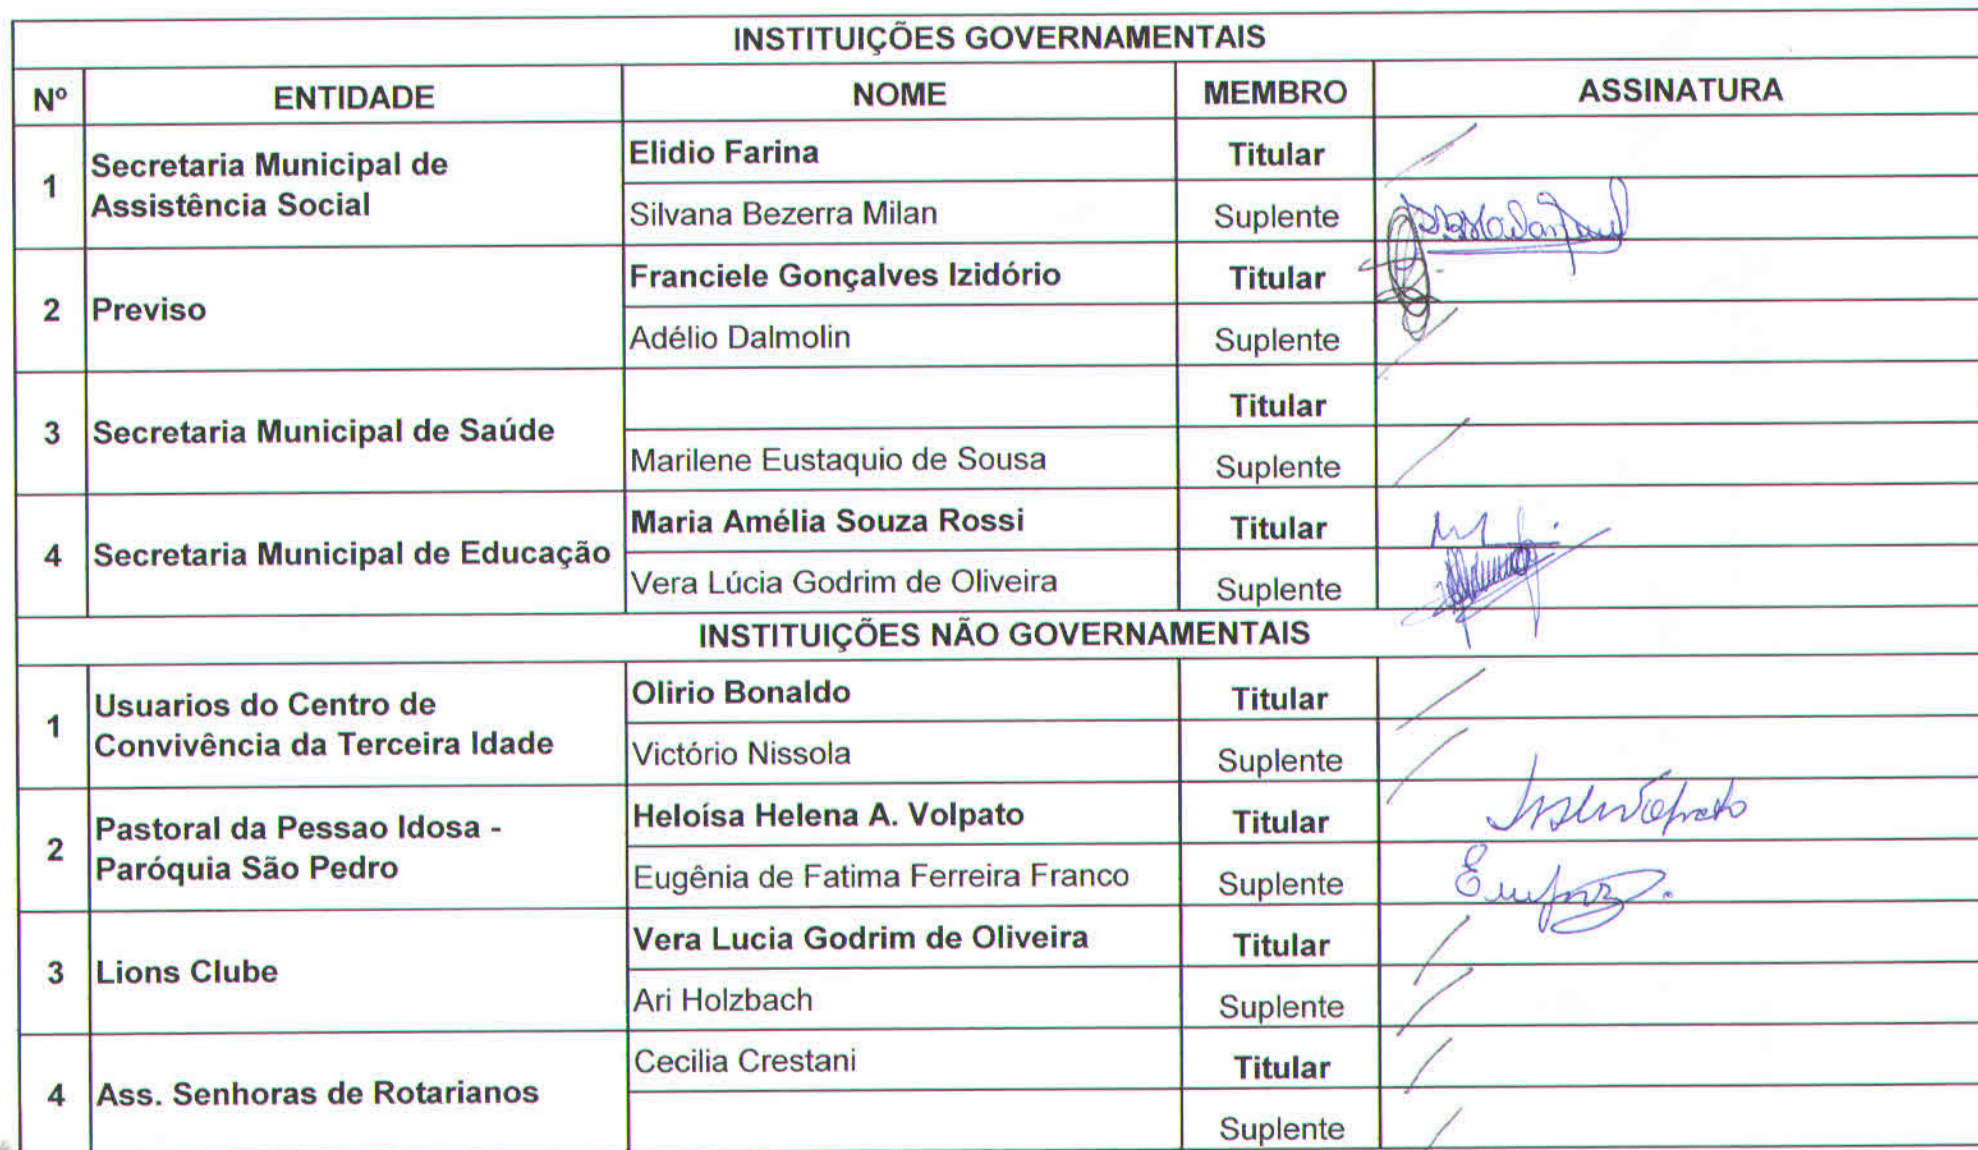 INSTITUIÇÕES GOVERNAMENTAIS
Nº ENTIDADE NOME MEMBRO ASSINATURA
1 Secretaria Municipal de Assistência Social
Elidio Farina Titular
Silvana Bezerra Milan Suplente
2 Previso
Franciele Gonçalves Izidório Titular
Adélio Dalmolin Suplente
3 Secretaria Municipal de Saúde
Titular
Marilene Eustaquio de Sousa Suplente
4 Secretaria Municipal de Educação
Maria Amélia Souza Rossi Titular
Vera Lúcia Godrim de Oliveira Suplente
INSTITUIÇÕES NÃO GOVERNAMENTAIS
1 Usuarios do Centro de Convivência da Terceira Idade
Olirio Bonaldo Titular
Victório Nissola Suplente
2 Pastoral da Pessao Idosa - Paróquia São Pedro
Heloísa Helena A. Volpato Titular
Eugênia de Fatima Ferreira Franco Suplente
3 Lions Clube
Vera Lucia Godrim de Oliveira Titular
Ari Holzbach Suplente
4 Ass. Senhoras de Rotarianos
Cecilia Crestani Titular
Suplente